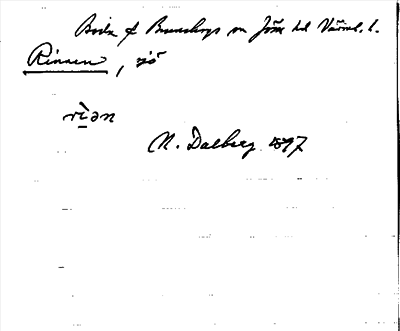 Boda f Brunskogs sn Jösse hd Värml. l.
Rinnen, sjö
rìən
N. Dalberg 1897